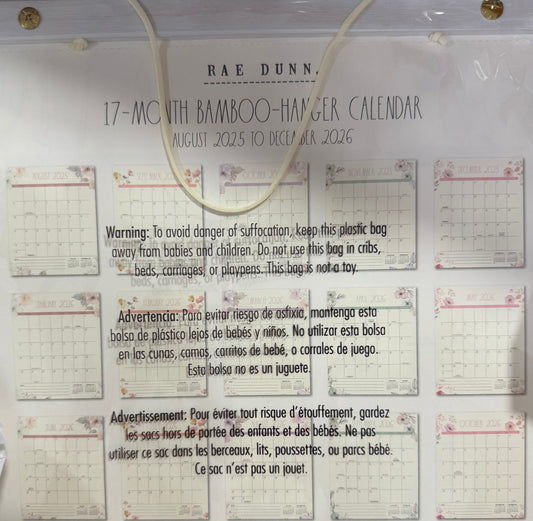 RAE DUNN.
17-MONTH BAMBOO-HANGER CALENDAR
AUGUST 2025 TO DECEMBER 2026
AUGUST 2025 SEPTEMBER 2025 OCTOBER 2025 NOVEMBER 2025 DECEMBER 2025
Warning: To avoid danger of suffocation, keep this plastic bag
away from babies and children. Do not use this bag in cribs,
beds, carriages, or playpens. This bag is not a toy.
JANUARY 2026 FEBRUARY 2026 MARCH 2026 APRIL 2026 MAY 2026
Advertencia: Para evitar riesgo de asfixia, mantenga esta
bolsa de plástico lejos de bebés y niños. No utilizar esta bolsa
en las cunas, camas, carritos de bebé, o corrales de juego.
Esta bolsa no es un juguete.
JUNE 2026 OCTOBER 2026
Advertissement: Pour éviter tout risque d'étouffement, gardez
les sacs hors de portée des enfants et des bébés. Ne pas
utiliser ce sac dans les berceaux, lits, poussettes, ou parcs bébé.
Ce sac n'est pas un jouet.